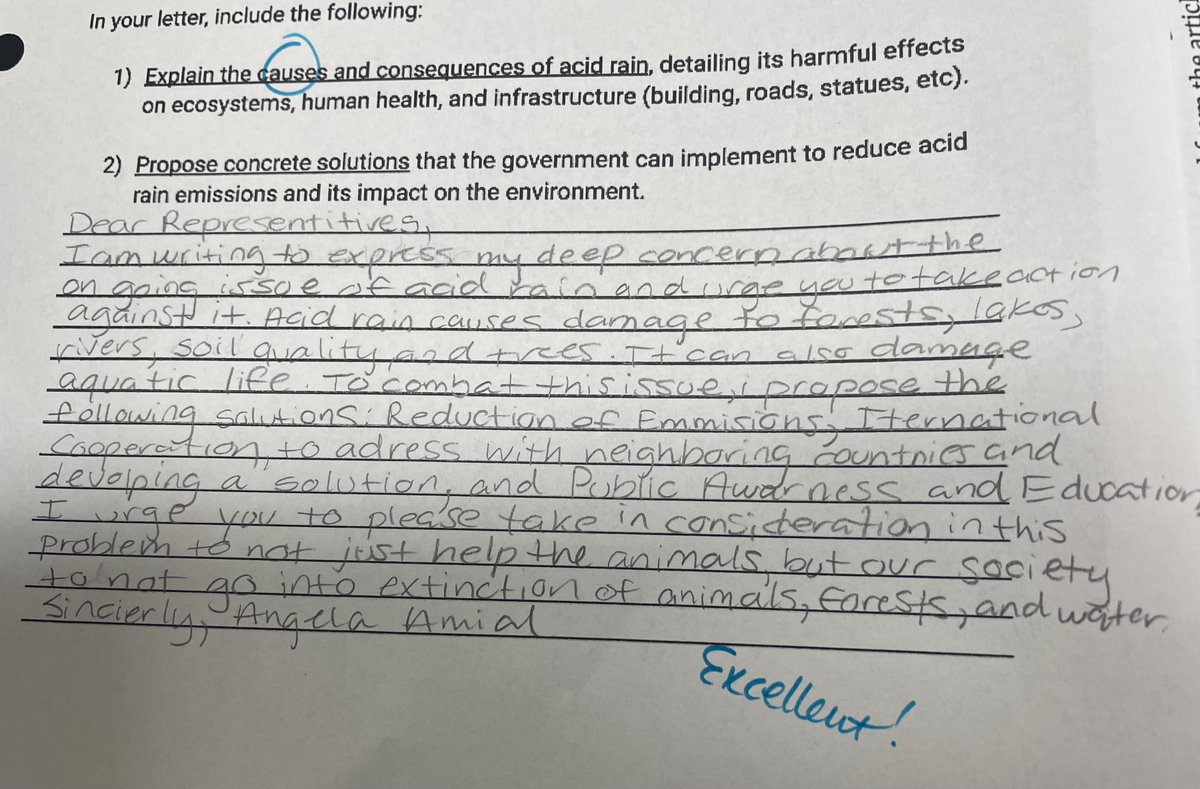 In your letter, include the following:
1) Explain the causes and consequences of acid rain, detailing its harmful effects
on ecosystems, human health, and infrastructure (building, roads, statues, etc).
2) Propose concrete solutions that the government can implement to reduce acid
rain emissions and its impact on the environment.
Dear Representitives,
I am writing to express my deep concern about the
on going issoe of acid rain and urge you to take action
against it. Acid rain causes damage to forests, lakes,
rivers, soil quality and trees. It can also damage
aquatic life. To combat this issue, i propose the
following solutions: Reduction of Emmisions, Iternational
Cooperation, to adress with neighboring countries and
devolping a solution, and Public Awarness and Education
I urge you to please take in consideration in this
problem to not just help the animals, but our society
to not go into extinction of animals, forests, and water.
Sincierly, Angela Amial
Excellent!
the articl